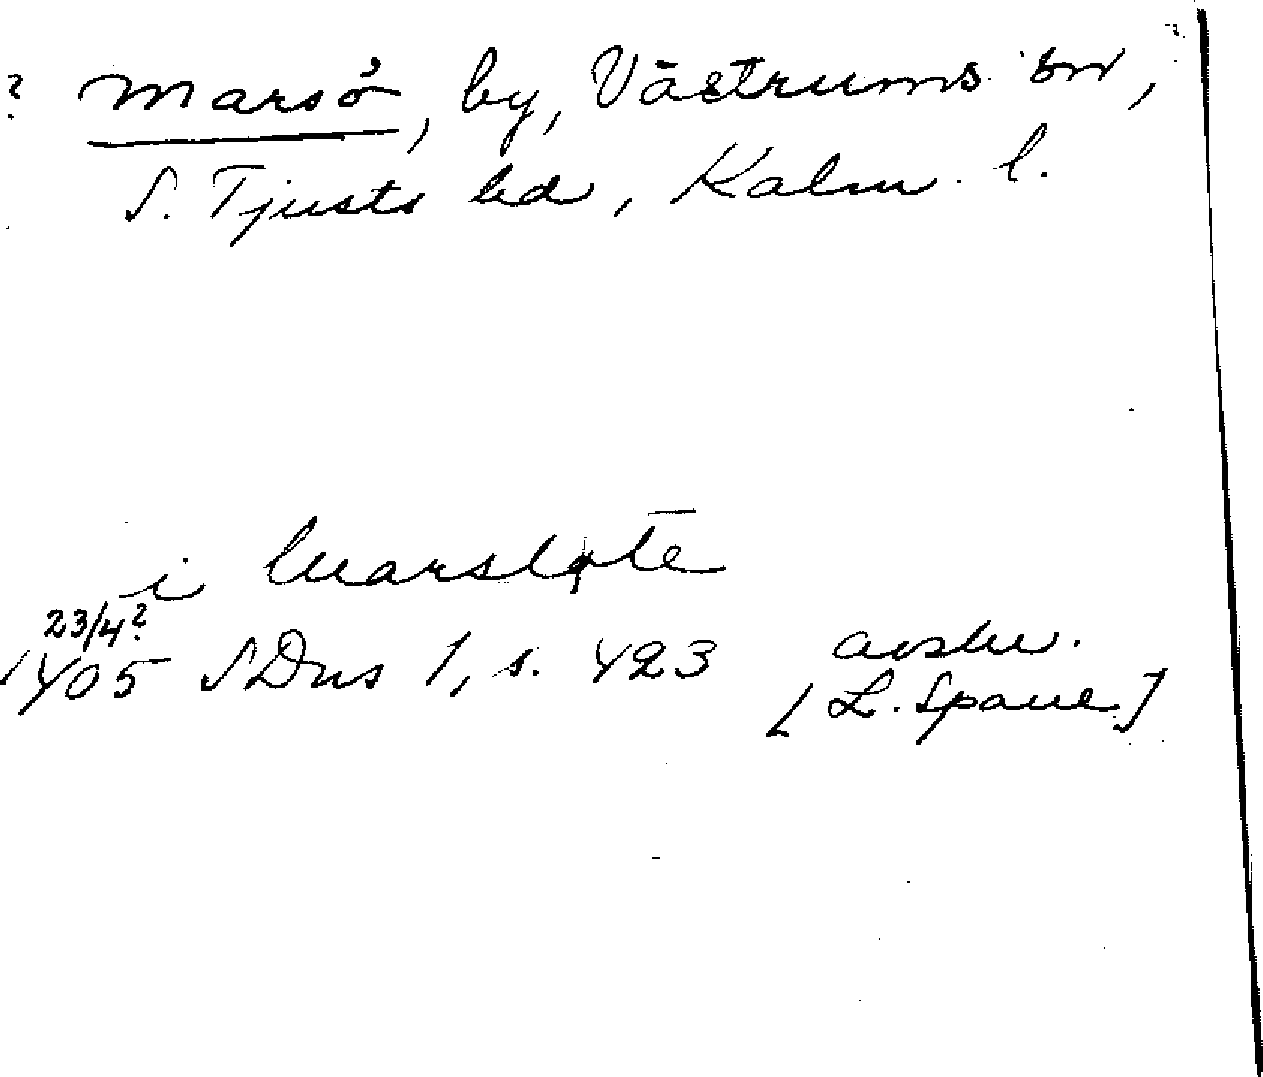 ? Marsö, by, Västrums sn,
S. Tjusts hd, Kalm. l.
i marsløtē
23/4?
1405 SDns 1, s. 423 avskr.
[L. Spaue]